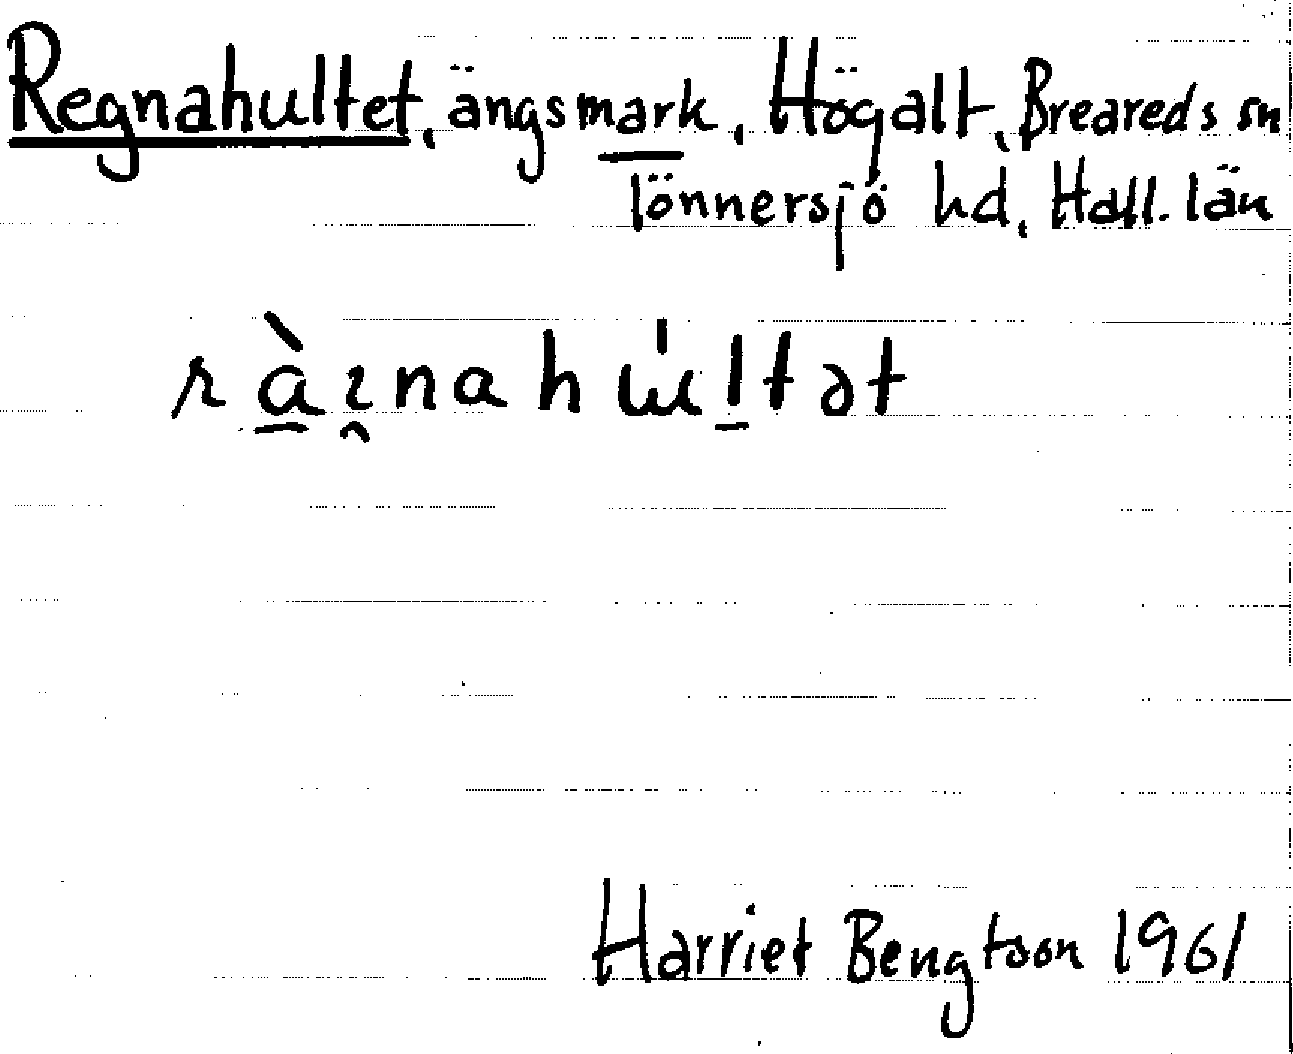 Regnahultet, ängsmark, Högalt, Breareds sn
Tönnersjö hd, Hall. län
ràınahu̇ltət
Harriet Bengtson 1961